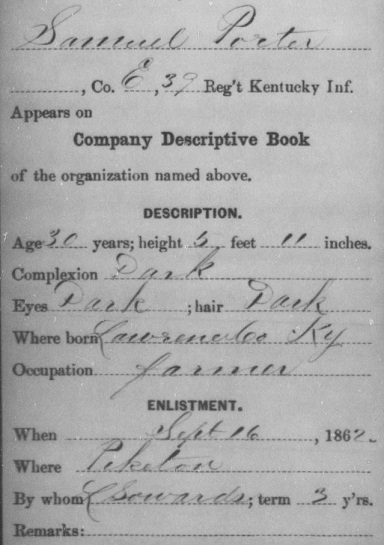 Samuel Porter
, Co. E, 39 Reg't Kentucky Inf.
Appears on
Company Descriptive Book
of the organization named above.
DESCRIPTION.
Age 30 years; height 5 feet 11 inches.
Complexion Dark
Eyes Dark ; hair Dark
Where born Lawrence Co Ky
Occupation farmer
ENLISTMENT.
When Sept 16 , 1862.
Where Piketon
By whom L Sowards ; term 3 y'rs.
Remarks: